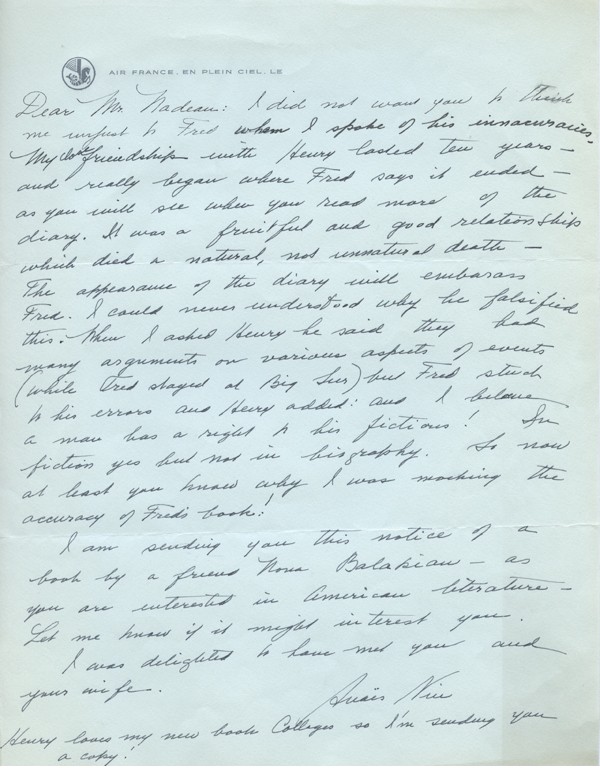 AIR FRANCE. EN PLEIN CIEL, LE
Dear Mr. Nadeau: I did not want you to think
me unjust to Fred when I spoke of his innacuracies.
My love friendship with Henry lasted ten years –
and really began where Fred says it ended –
as you will see when you read more of the
diary. It was a fruitful and good relationship
which died a natural, not unnatural death –
The appearance of the diary will embarass
Fred. I could never understood why he falsified
this. When I asked Henry he said they had
many arguments on various aspects of events
(while Fred stayed at Big Sur) but Fred stuck
to his errors and Henry added: and I believe
a man has a right to his fictions! In
fiction yes but not in biography. So now
at least you know why I was mocking the
accuracy of Fred's book!
I am sending you this notice of a
book by a friend Nona Balakian – as
you are interested in American literature –
Let me know if it might interest you.
I was delighted to have met you and
your wife.
Anaïs Nin
Henry loves my new book Collages so I'm sending you
a copy!